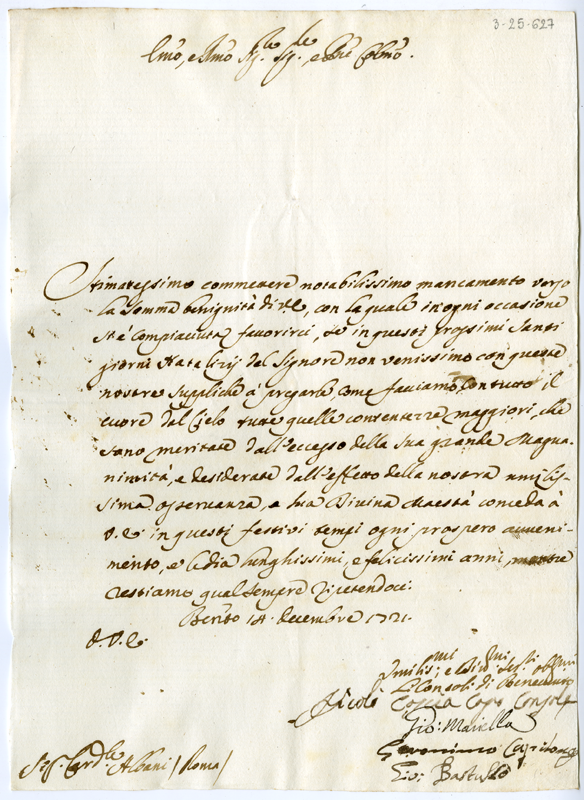 3-25-627
Emo, e Rmo Sig.re Sig.re, e Pne Colmo.
Stimaressimo commettere notabilissimo mancamento verso
la somma benignità di V.E., con la quale in ogni occasione
si è compiaciuta favorirci, se in questi prossimi Santi
giorni Natalizij del Signore non venissimo con queste
nostre suppliche à pregarle, come facciamo con tutto il
cuore dal Cielo tutte quelle contentezze maggiori, che
sono meritate dall'eccesso della sua grande Magna
nimità, e desiderate dall'effetto della nostra umilis-
sima osservanza, e Sua Divina Maestà conceda à
V.E. in questi festivi tempi ogni prospero avveni-
mento, e le dia lunghissimi, e felicissimi anni, mentre
restiamo qual sempre ripetendoci.
Bento 14 decembre 1721.
D. V. E.
Umilis.mi e Divo.mi Ser.ri obb.mi
Li Consoli di Benevento
Nicolò Coscia Capo Console
Gio: Maiella
Geronimo
Gio: Bastullo
Sr. Card.le Albani / Roma /